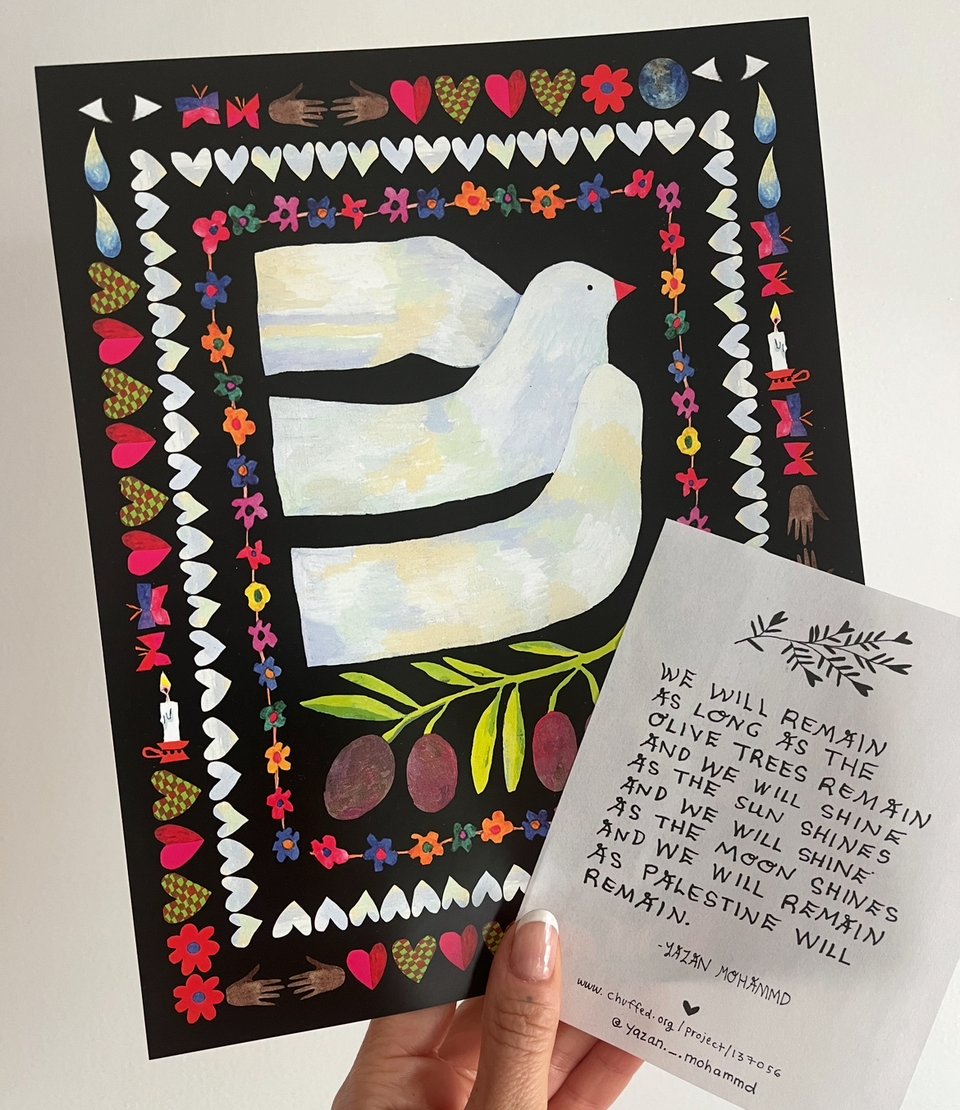 WE WILL REMAIN
AS LONG AS THE
OLIVE TREES REMAIN
AND WE WILL SHINE
AS THE SUN SHINES
AND WE WILL SHINE
AS THE MOON SHINES
AND WE WILL REMAIN
AS PALESTINE WILL
REMAIN.
-YAZAN MOHAMMD
www.chuffed.org/project/137056
@yazan._.mohammd